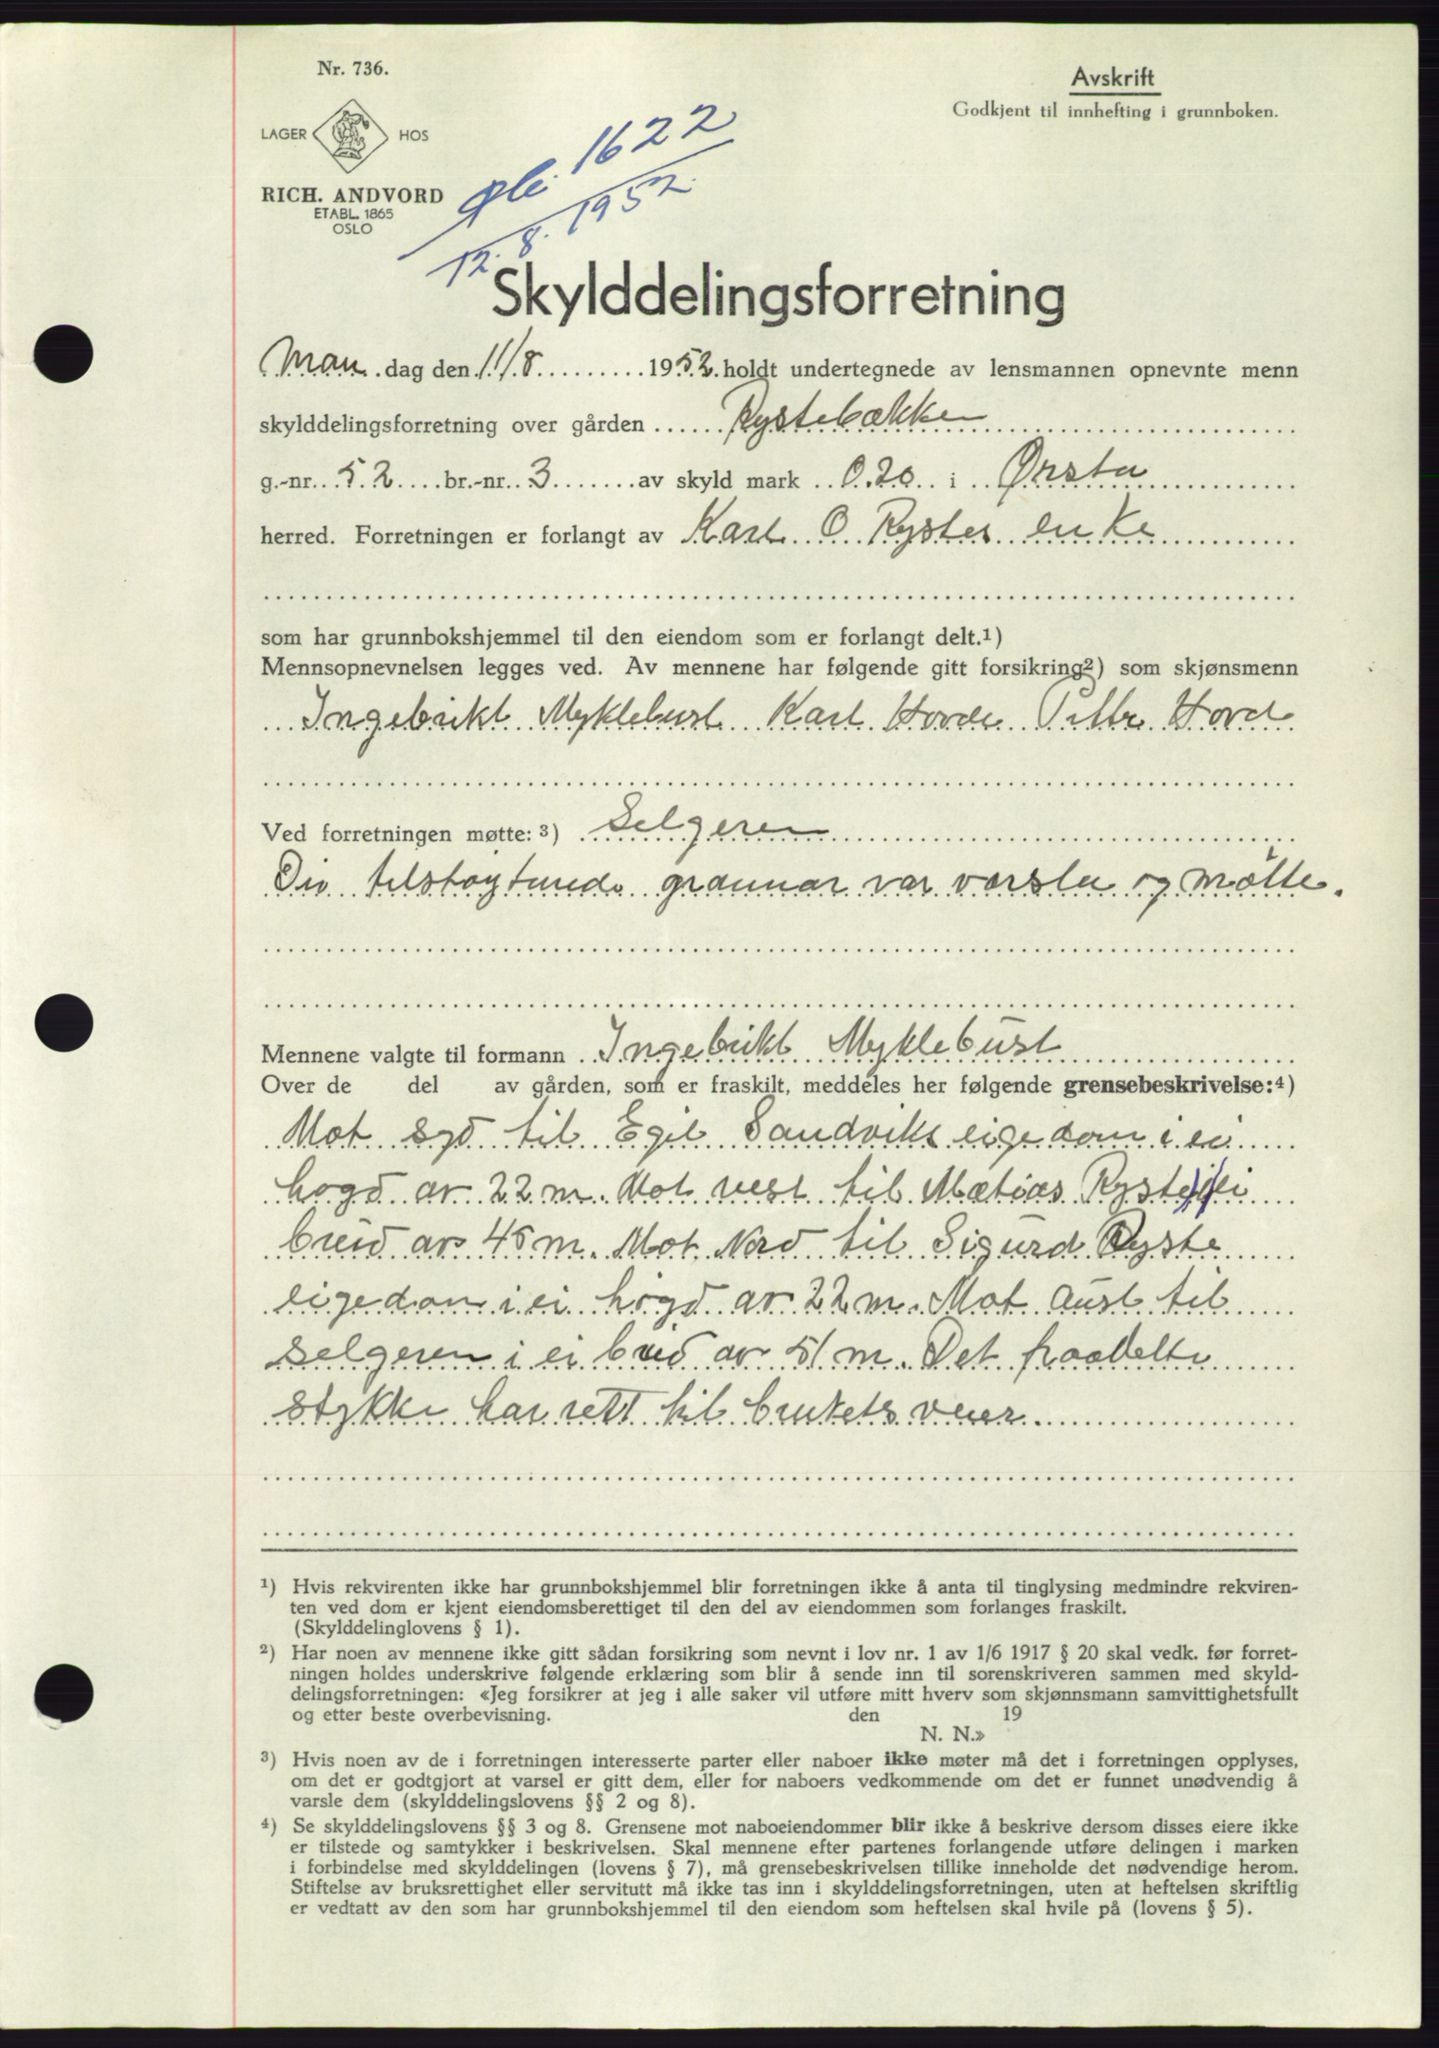 Nr. 736.
Avskrift
Godkjent til innhefting i grunnboken.
LAGER HOS
RICH. ANDVORD
ETABL. 1865
OSLO
1622
12. 8. 1952.
Skylddelingsforretning
Man dag den 11/8 1952 holdt undertegnede av lensmannen opnevnte menn
skylddelingsforretning over gården Rystebække
g.-nr. 52 br.-nr. 3 av skyld mark 0.20 i Ørsta
herred. Forretningen er forlangt av Karl O Rystes enke
som har grunnbokshjemmel til den eiendom som er forlangt delt.¹)
Mennsopnevnelsen legges ved. Av mennene har følgende gitt forsikring²) som skjønsmenn
Ingebrikt Myklebust Karl Hovde Petter Hovde
Ved forretningen møtte: ³) Selgeren
Dei tilstøytende grannar var varsla og møtte.
Mennene valgte til formann Ingebrikt Myklebust
Over de del av gården, som er fraskilt, meddeles her følgende grensebeskrivelse:⁴)
Mot syd til Egil Sandviks eigedom i ei
høgd av 22 m. Mot vest til Matias Ryste i ei
breid av 45 m. Mot Nord til Sigurd Ryste
eigedom i ei høgd av 22 m. Mot aust til
selgeren i ei breid av 51 m. Det fradelte
stykke har rett til brukets veier.
¹) Hvis rekvirenten ikke har grunnbokshjemmel blir forretningen ikke å anta til tinglysing medmindre rekviren-
ten ved dom er kjent eiendomsberettiget til den del av eiendommen som forlanges fraskilt.
(Skylddelinglovens § 1).
²) Har noen av mennene ikke gitt sådan forsikring som nevnt i lov nr. 1 av 1/6 1917 § 20 skal vedk. før forret-
ningen holdes underskrive følgende erklæring som blir å sende inn til sorenskriveren sammen med skyld-
delingsforretningen: «Jeg forsikrer at jeg i alle saker vil utføre mitt hverv som skjønnsmann samvittighetsfullt
og etter beste overbevisning. den 19
N. N.»
³) Hvis noen av de i forretningen interesserte parter eller naboer ikke møter må det i forretningen opplyses,
om det er godtgjort at varsel er gitt dem, eller for naboers vedkommende om det er funnet unødvendig å
varsle dem (skylddelingslovens §§ 2 og 8).
⁴) Se skylddelingslovens §§ 3 og 8. Grensene mot naboeiendommer blir ikke å beskrive dersom disses eiere ikke
er tilstede og samtykker i beskrivelsen. Skal mennene efter partenes forlangende utføre delingen i marken
i forbindelse med skylddelingen (lovens § 7), må grensebeskrivelsen tillike inneholde det nødvendige herom.
Stiftelse av bruksrettighet eller servitutt må ikke tas inn i skylddelingsforretningen, uten at heftelsen skriftlig
er vedtatt av den som har grunnbokshjemmel til den eiendom som heftelsen skal hvile på (lovens § 5).